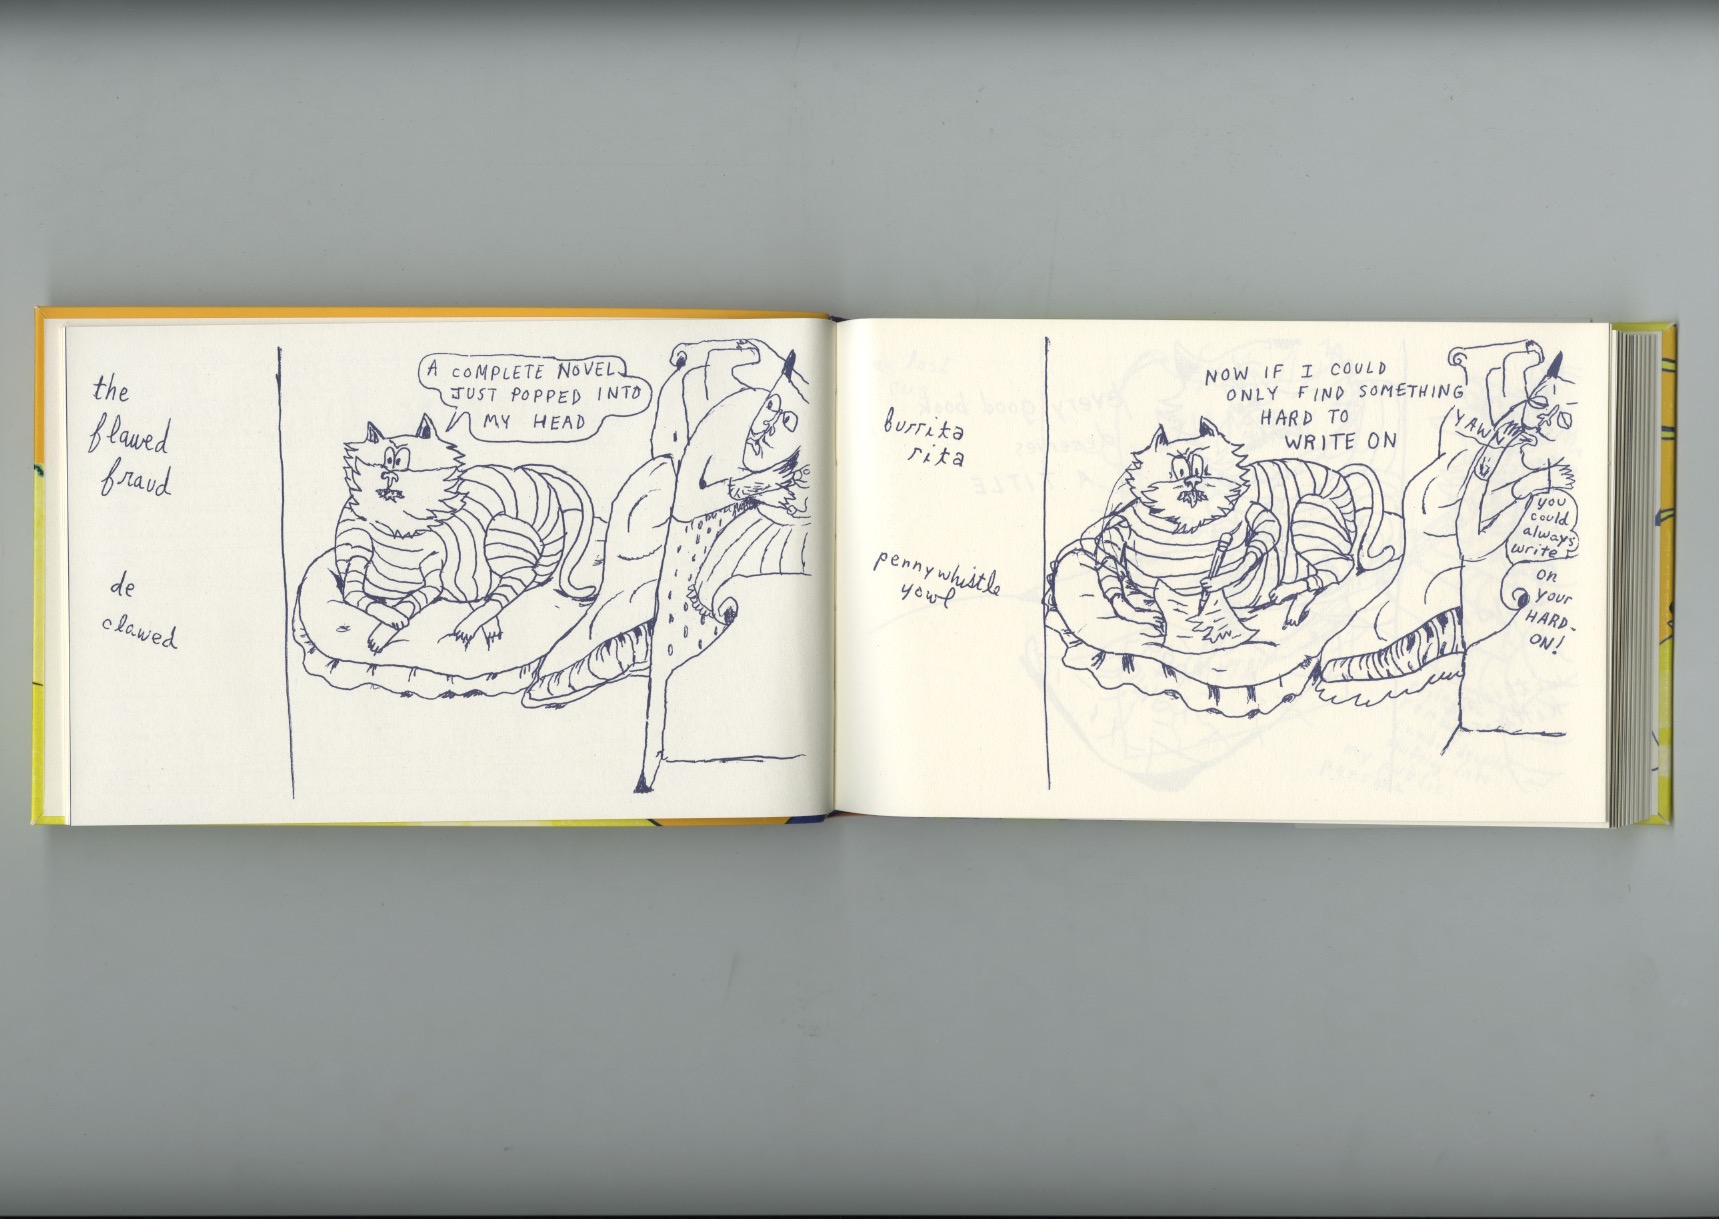 the
flawed
fraud
de
clawed
A COMPLETE NOVEL
JUST POPPED INTO
MY HEAD
burrita
rita
pennywhistle
yowl
NOW IF I COULD
ONLY FIND SOMETHING
HARD TO
WRITE ON
YAWN
you
could
always
write
on
your
HARD-
ON!
every good book
deserves
A TITLE